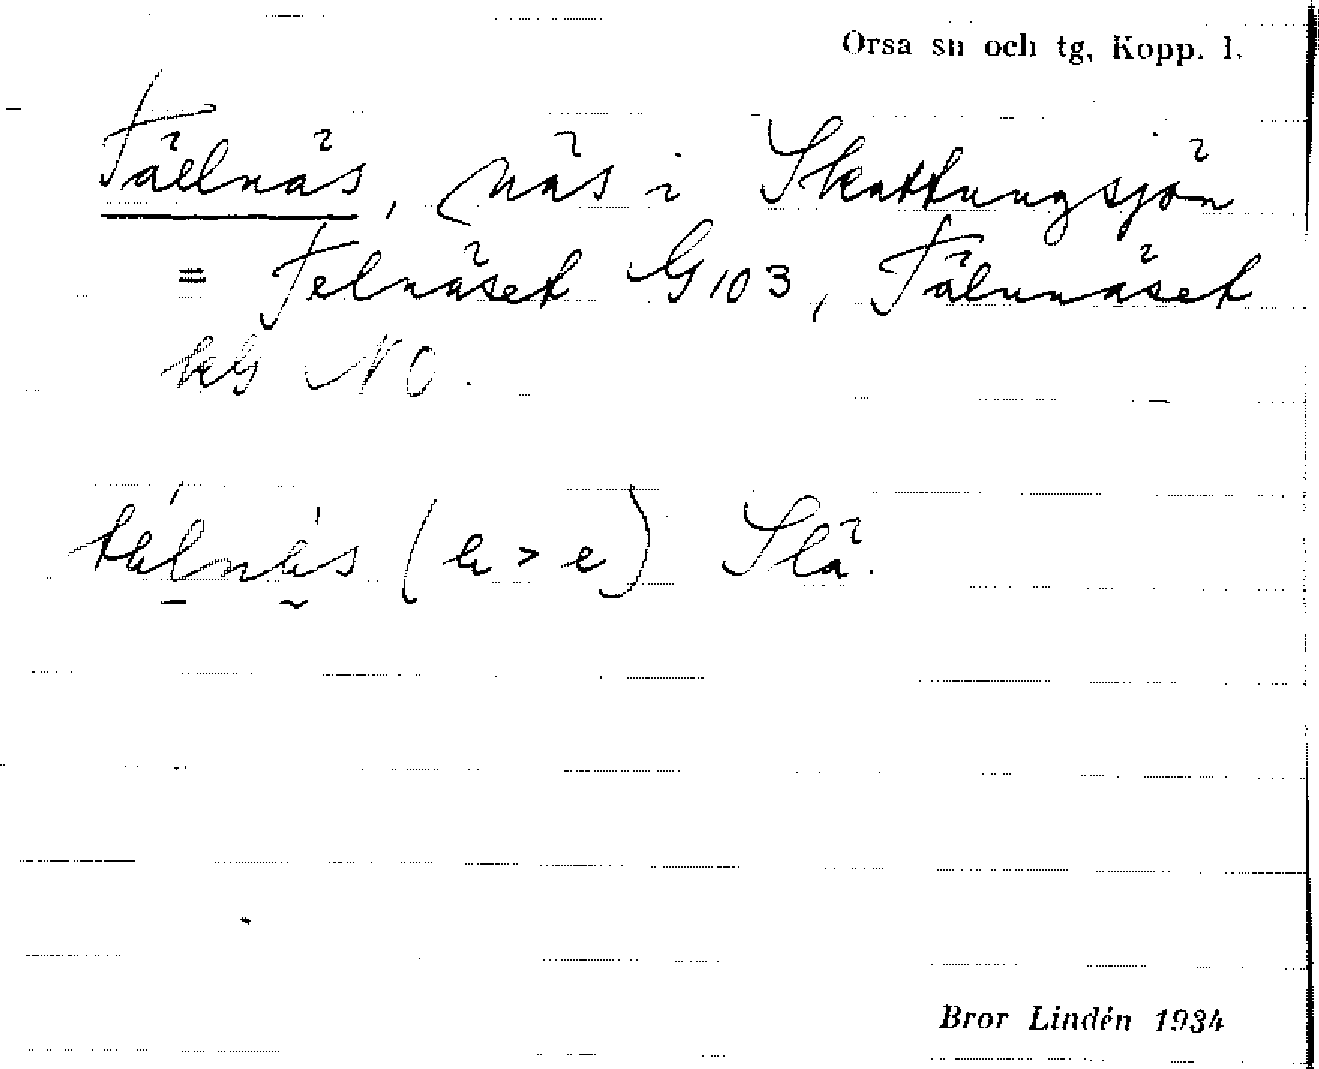 Orsa sn och tg, Kopp. l.
Fäelnäs, näs i Skattungsjön
= Felnäset G 103, Fälnnäset
kbl NO.
tälnäs (ä > e) Slä.
Bror Lindén 1934